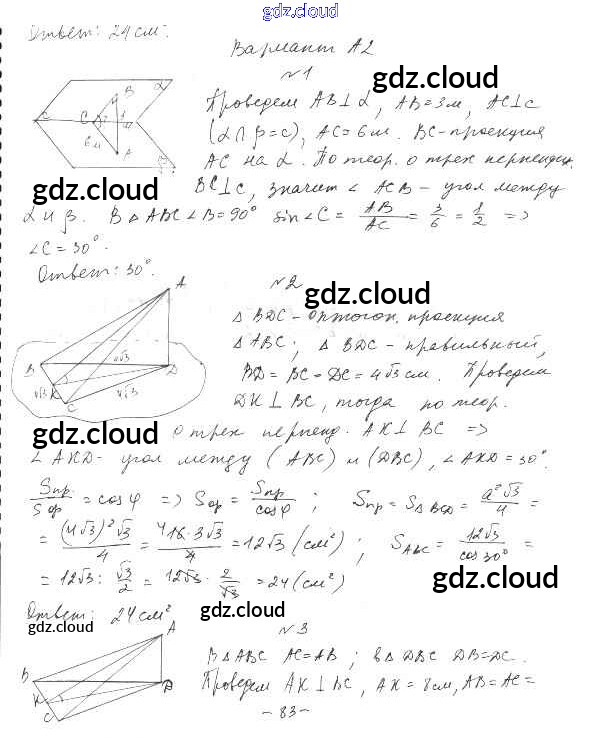 gdz.cloud
Ответ: 24 см.
Вариант А2
№1
gdz.cloud
Проведем AB⊥α, AB=3м, AC⊥c
(α∩β=c), AC=6м. BC-проекция
AC на α. По теор. о трех перпендик.
gdz.cloud
BC⊥c, значит ∠ACB - угол между
α и β. В △ABC ∠B=90° sin∠C = AB/AC = 3/6 = 1/2 =>
∠C=30°.
Ответ: 30°.
№2
gdz.cloud
△BDC - ортогон. проекция
△ABC; △BDC - правильный,
BD = BC = DC = 4√3 см. Проведем
DK⊥BC, тогда по теор.
gdz.cloud
о трех перпенд. AK⊥BC =>
∠AKD - угол между (ABC) и (DBC), ∠AKD=30°.
Sпр/Sор = cosφ => Sор = Sпр/cosφ ; Sпр = S△BCD = a²√3/4 =
= (4√3)²√3/4 = 16·3√3/4 = 12√3 (см²) ; S ABC = 12√3/cos30° =
= 12√3 : √3/2 = 12√3 · 2/√3 = 24 (см²)
gdz.cloud
Ответ: 24 см²
gdz.cloud
gdz.cloud
№3
В △ABC AC=AB ; в △DBC DB=DC.
Проведем AK⊥BC, AK=8см, AB=AC=
-83-
gdz.cloud
A
B
C
c
α
β
6м
3м
A
B
C
D
K
4√3
4√3
4√3
A
B
C
D
K